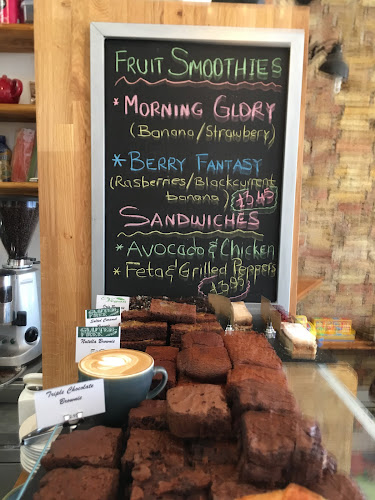 FRUIT SMOOTHIES
* MORNING GLORY
(Banana/Strawbery)
* BERRY FANTASY
(Rasberries/Blackcurrent
banana) £3.45
SANDWICHES
* AVOCADO & CHICKEN
* FETA & GRILLED PEPPERS
£3.95
Salted Caramel
Nutella Brownie
Triple Chocolate
Brownie